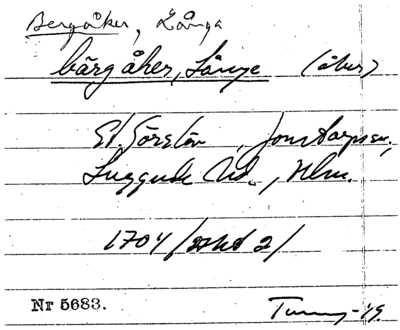 Bergåker, Långa
bärgåker, Långe (åker)
St. Törstôn, Jonstorps sn.,
Luggude hd., Hlm.
1704 / 2
Nr 5683.